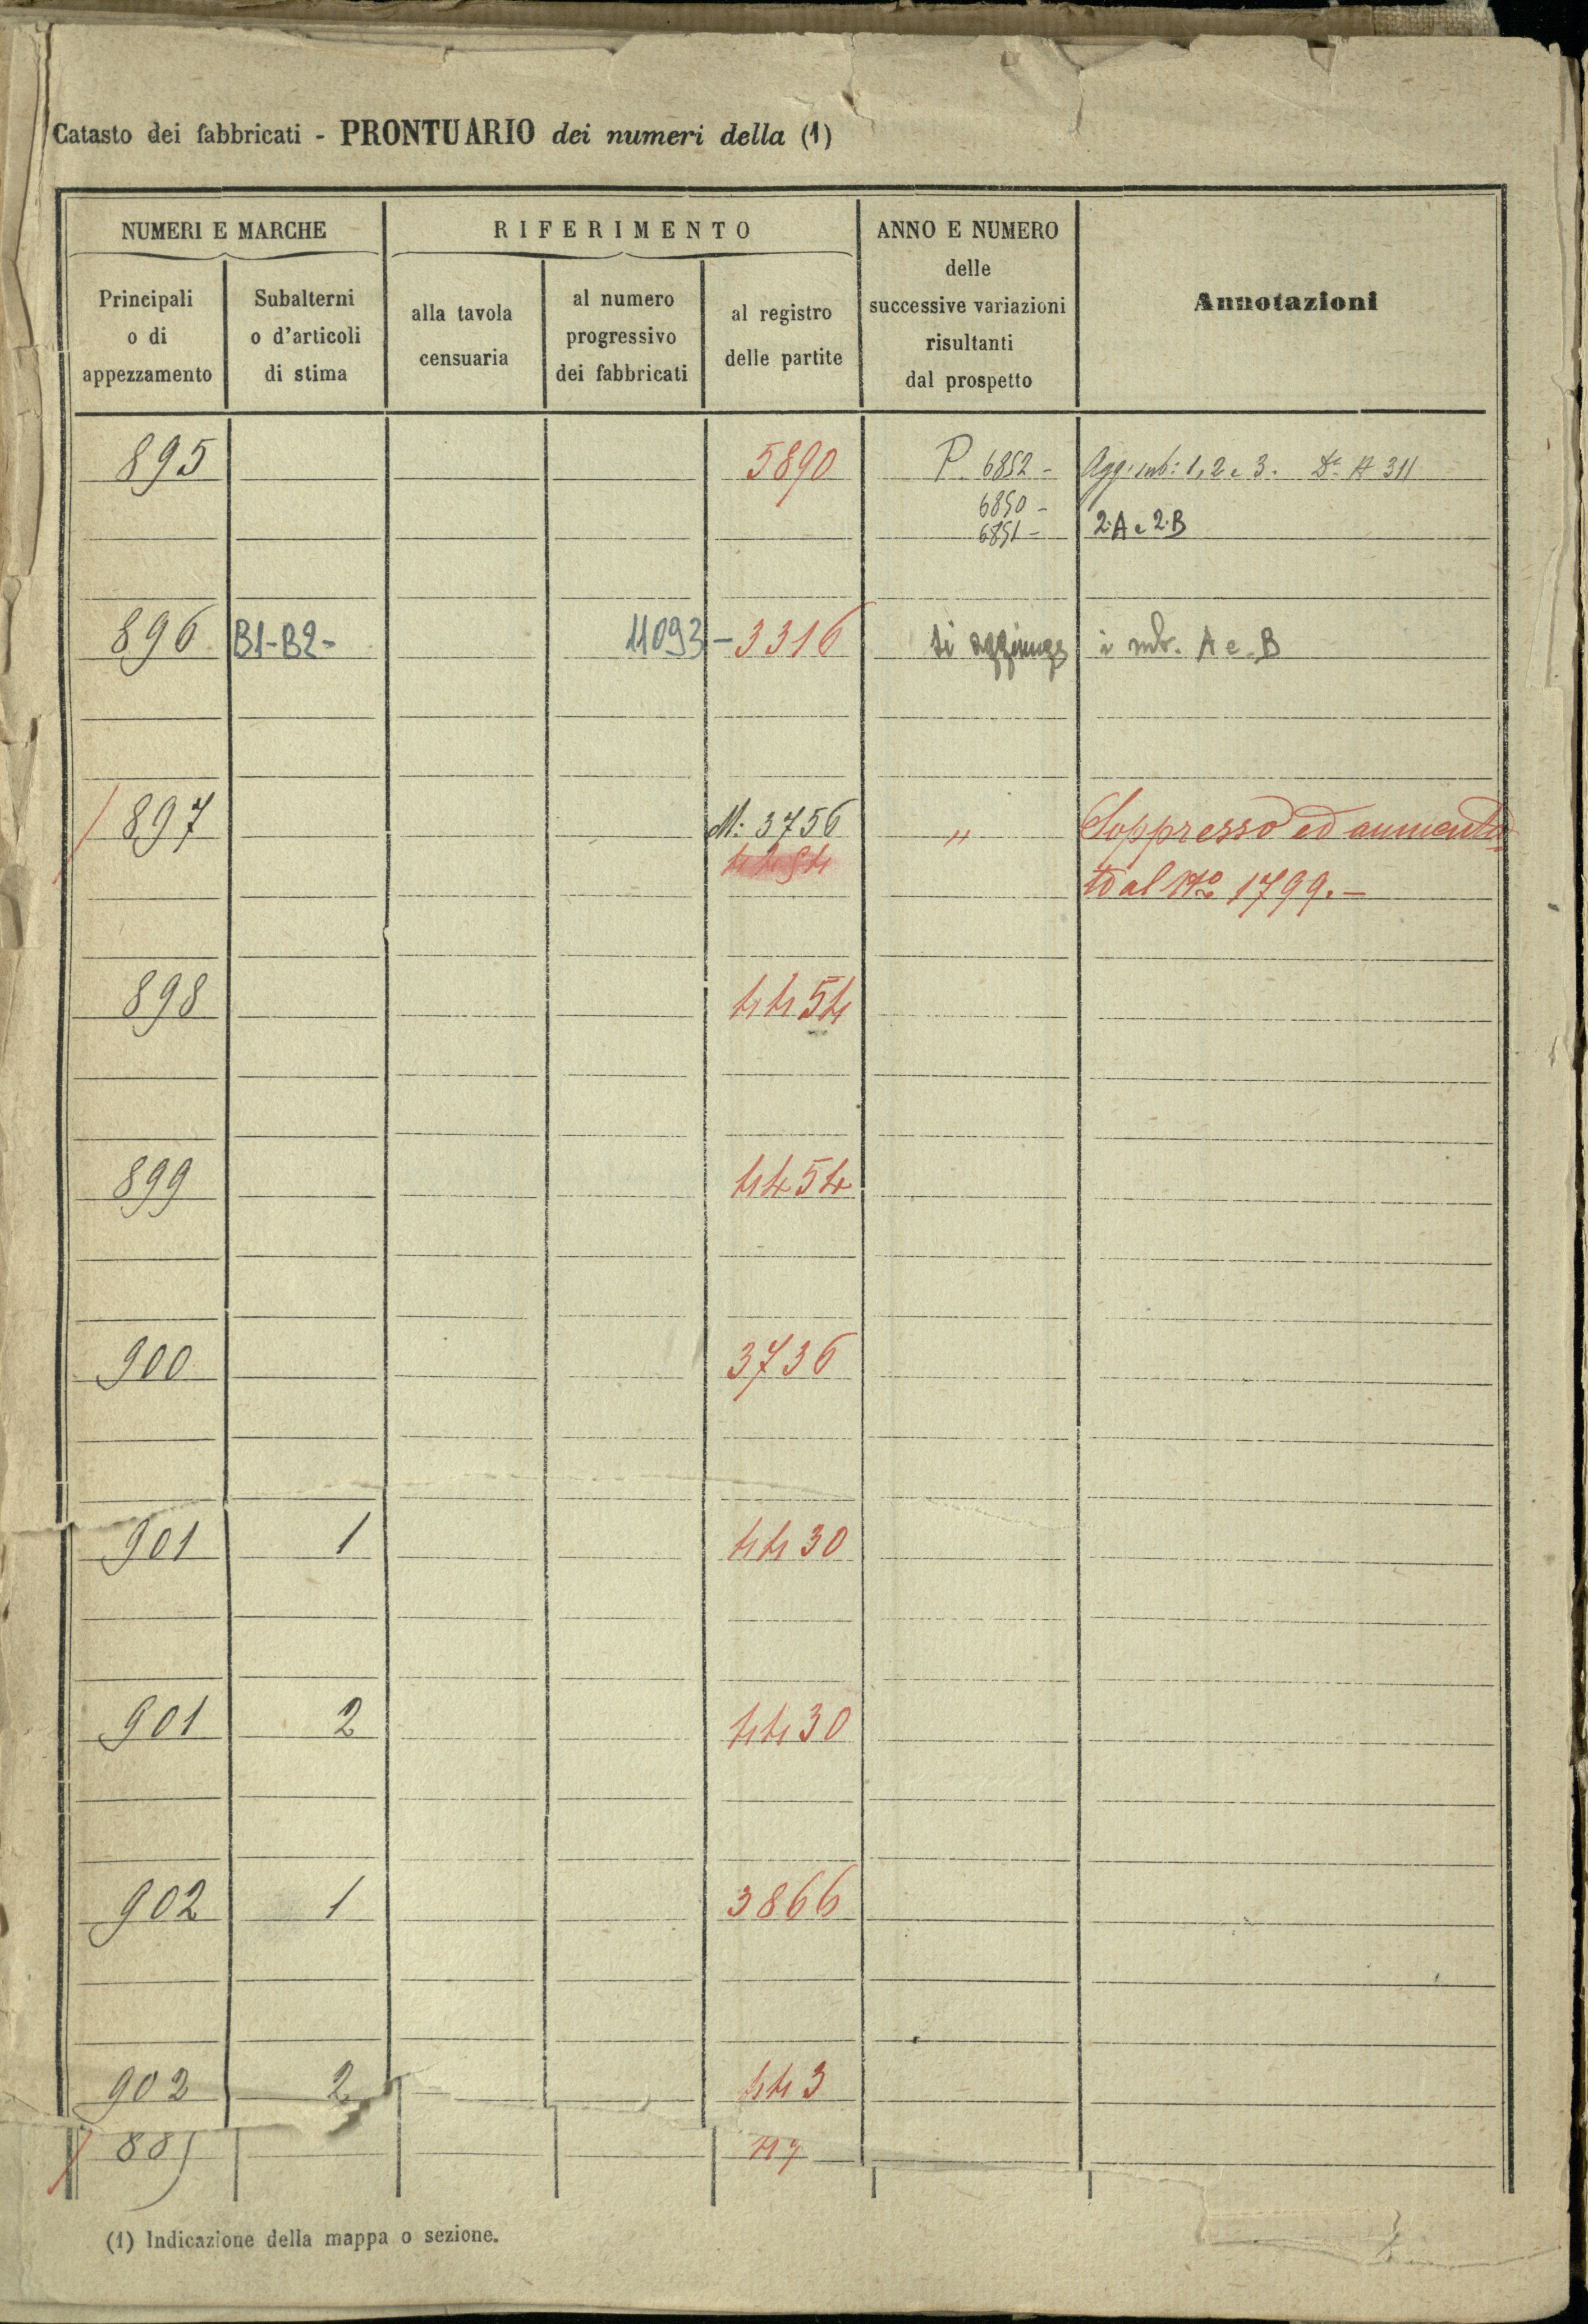 Catasto dei fabbricati - PRONTUARIO dei numeri della (1)
NUMERI E MARCHE
RIFERIMENTO
ANNO E NUMERO
delle
successive variazioni
risultanti
dal prospetto
Annotazioni
Principali
o di
appezzamento
Subalterni
o d'articoli
di stima
alla tavola
censuaria
al numero
progressivo
dei fabbricati
al registro
delle partite
895 5890 P. 6852 - Agg. sub: 1, 2 e 3. 311
6850 -
6851 - 2.A e 2.B
896 B1-B2- 11093 - 3316 si aggiunge i sub. A e B
897 M: 3756 " Soppresso ed aumenta=
4454 to al No 1799.-
898 4454
899 4454
900 3736
901 1 4430
901 2 4430
902 1 3866
902 2 443
(1) Indicazione della mappa o sezione.